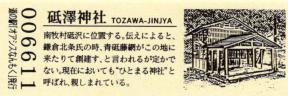 砥澤神社 TOZAWA-JINJYA
南牧村砥沢に位置する。伝えによると、
鎌倉北条氏の時、青砥藤綱がこの地に
来たりて創建す、と言われるが定かで
ない。現在においても“ひとまる神社”と
呼ばれ、親しまれている。
006611
道の駅「オアシスなんもく」発行